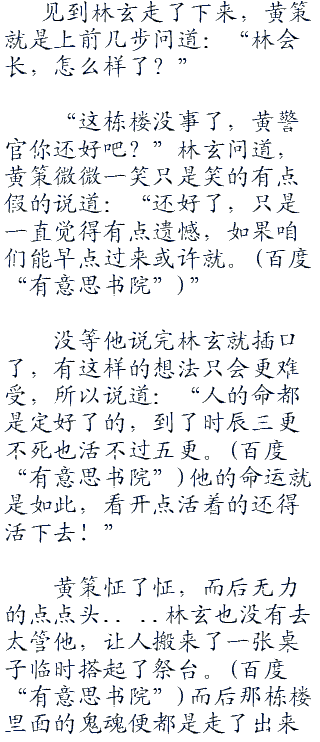 见到林玄走了下来，黄策
就是上前几步问道：“林会
长，怎么样了？”
“这栋楼没事了，黄警
官你还好吧？”林玄问道，
黄策微微一笑只是笑的有点
假的说道：“还好了，只是
一直觉得有点遗憾，如果咱
们能早点过来或许就。(百度
“有意思书院”)”
没等他说完林玄就插口
了，有这样的想法只会更难
受，所以说道：“人的命都
是定好了的，到了时辰三更
不死也活不过五更。(百度
“有意思书院”)他的命运就
是如此，看开点活着的还得
活下去！”
黄策怔了怔，而后无力
的点点头．．．．林玄也没有去
太管他，让人搬来了一张桌
子临时搭起了祭台。(百度
“有意思书院”)而后那栋楼
里面的鬼魂便都是走了出来